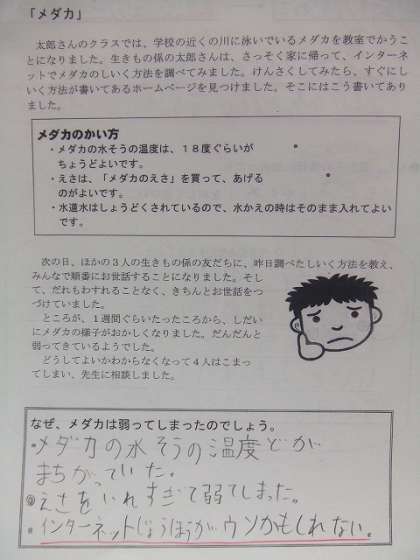 「メダカ」
太郎さんのクラスでは、学校の近くの川に泳いでいるメダカを教室でかうこ
とになりました。生きもの係の太郎さんは、さっそく家に帰って、インターネ
ットでメダカのしいく方法を調べてみました。けんさくしてみたら、すぐにし
いく方法が書いてあるホームページを見つけました。そこにはこう書いてあり
ました。
メダカのかい方
・メダカの水そうの温度は、18度ぐらいが
ちょうどよいです。
・えさは、「メダカのえさ」を買って、あげる
のがよいです。
・水道水はしょうどくされているので、水かえの時はそのまま入れてよい
です。
次の日、ほかの3人の生きもの係の友だちに、昨日調べたしいく方法を教え、
みんなで順番にお世話することになりました。そし
て、だれもわすれることなく、きちんとお世話をつ
づけていました。
ところが、1週間ぐらいたったころから、しだい
にメダカの様子がおかしくなりました。だんだんと
弱ってきているようでした。
どうしてよいかわからなくなって4人はこまっ
てしまい、先生に相談しました。
なぜ、メダカは弱ってしまったのでしょう。
・メダカの水そうの温度どが
まちがっていた。
・えさをいれすぎて弱てしまった。
・インターネットじょうほうがウソかもしれない。